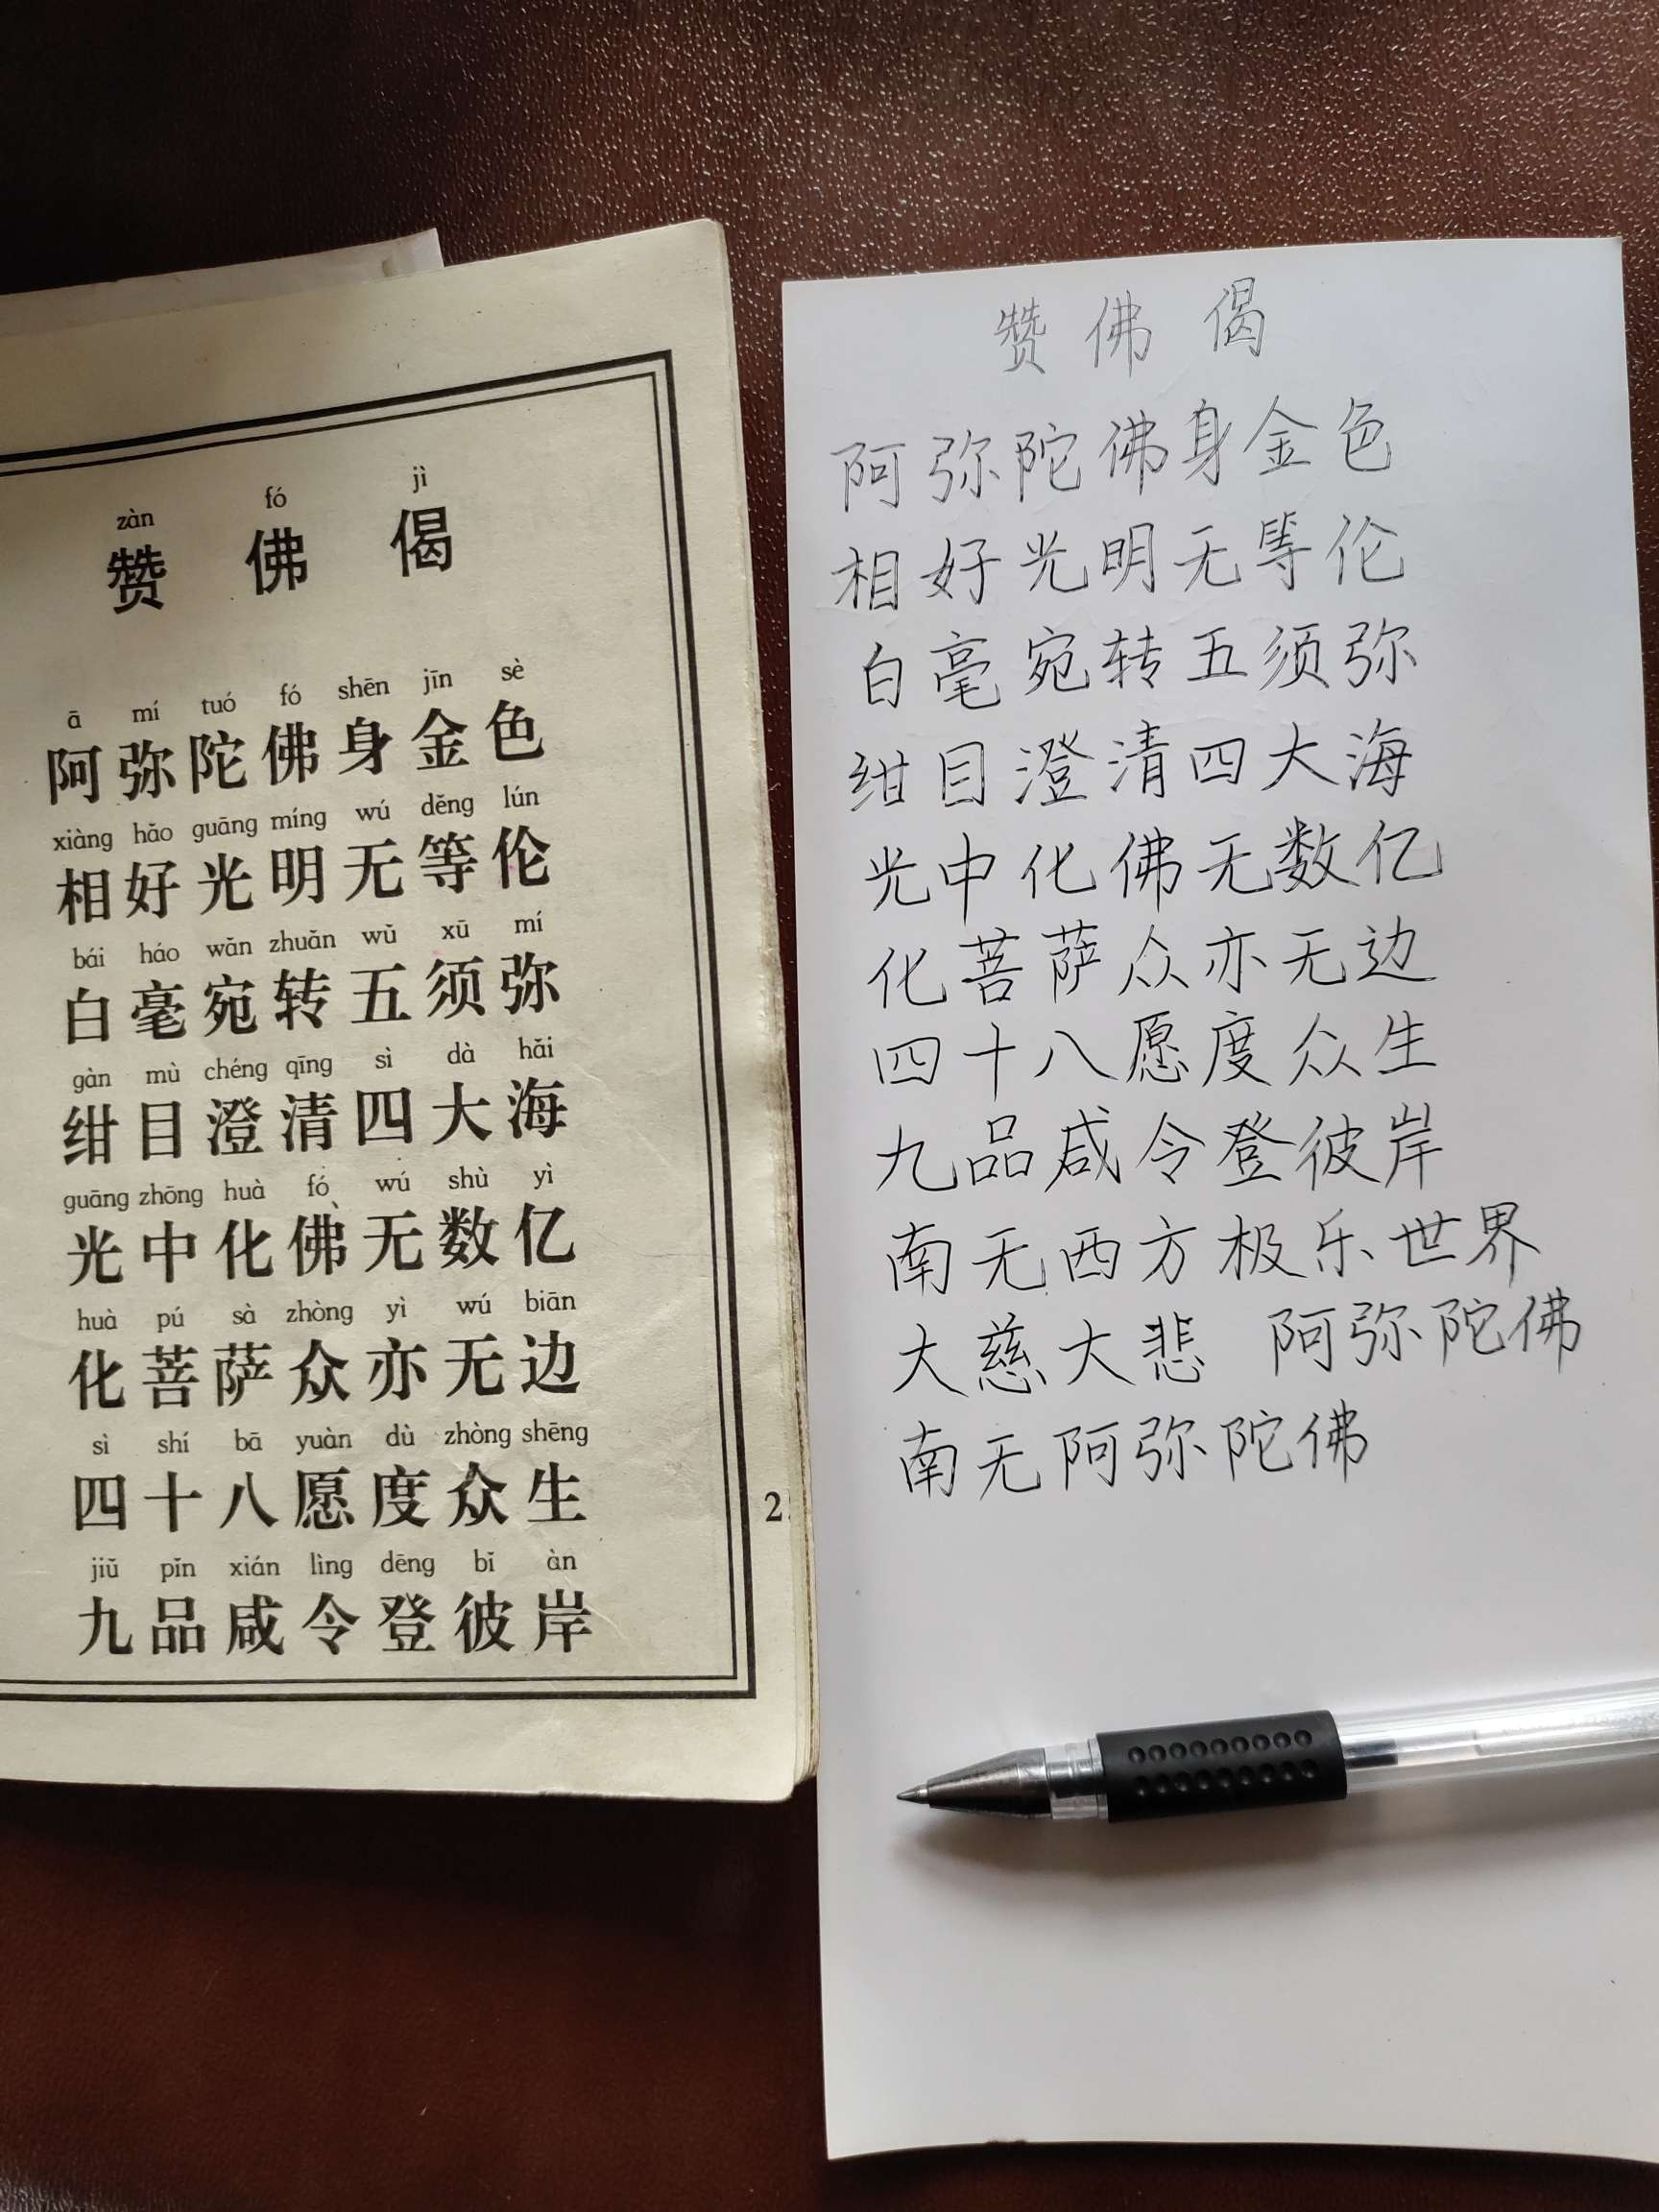 zàn fó jì
赞 佛 偈
ā mí tuó fó shēn jīn sè
阿弥陀佛身金色
xiàng hǎo guāng míng wú děng lún
相好光明无等伦
bái háo wǎn zhuǎn wǔ xū mí
白毫宛转五须弥
gàn mù chéng qīng sì dà hǎi
绀目澄清四大海
guāng zhōng huà fó wú shù yì
光中化佛无数亿
huà pú sà zhòng yì wú biān
化菩萨众亦无边
sì shí bā yuàn dù zhòng shēng
四十八愿度众生
jiǔ pǐn xián lìng dēng bǐ àn
九品咸令登彼岸
赞 佛 偈
阿弥陀佛身金色
相好光明无等伦
白毫宛转五须弥
绀目澄清四大海
光中化佛无数亿
化菩萨众亦无边
四十八愿度众生
九品咸令登彼岸
南无西方极乐世界
大慈大悲 阿弥陀佛
南无阿弥陀佛